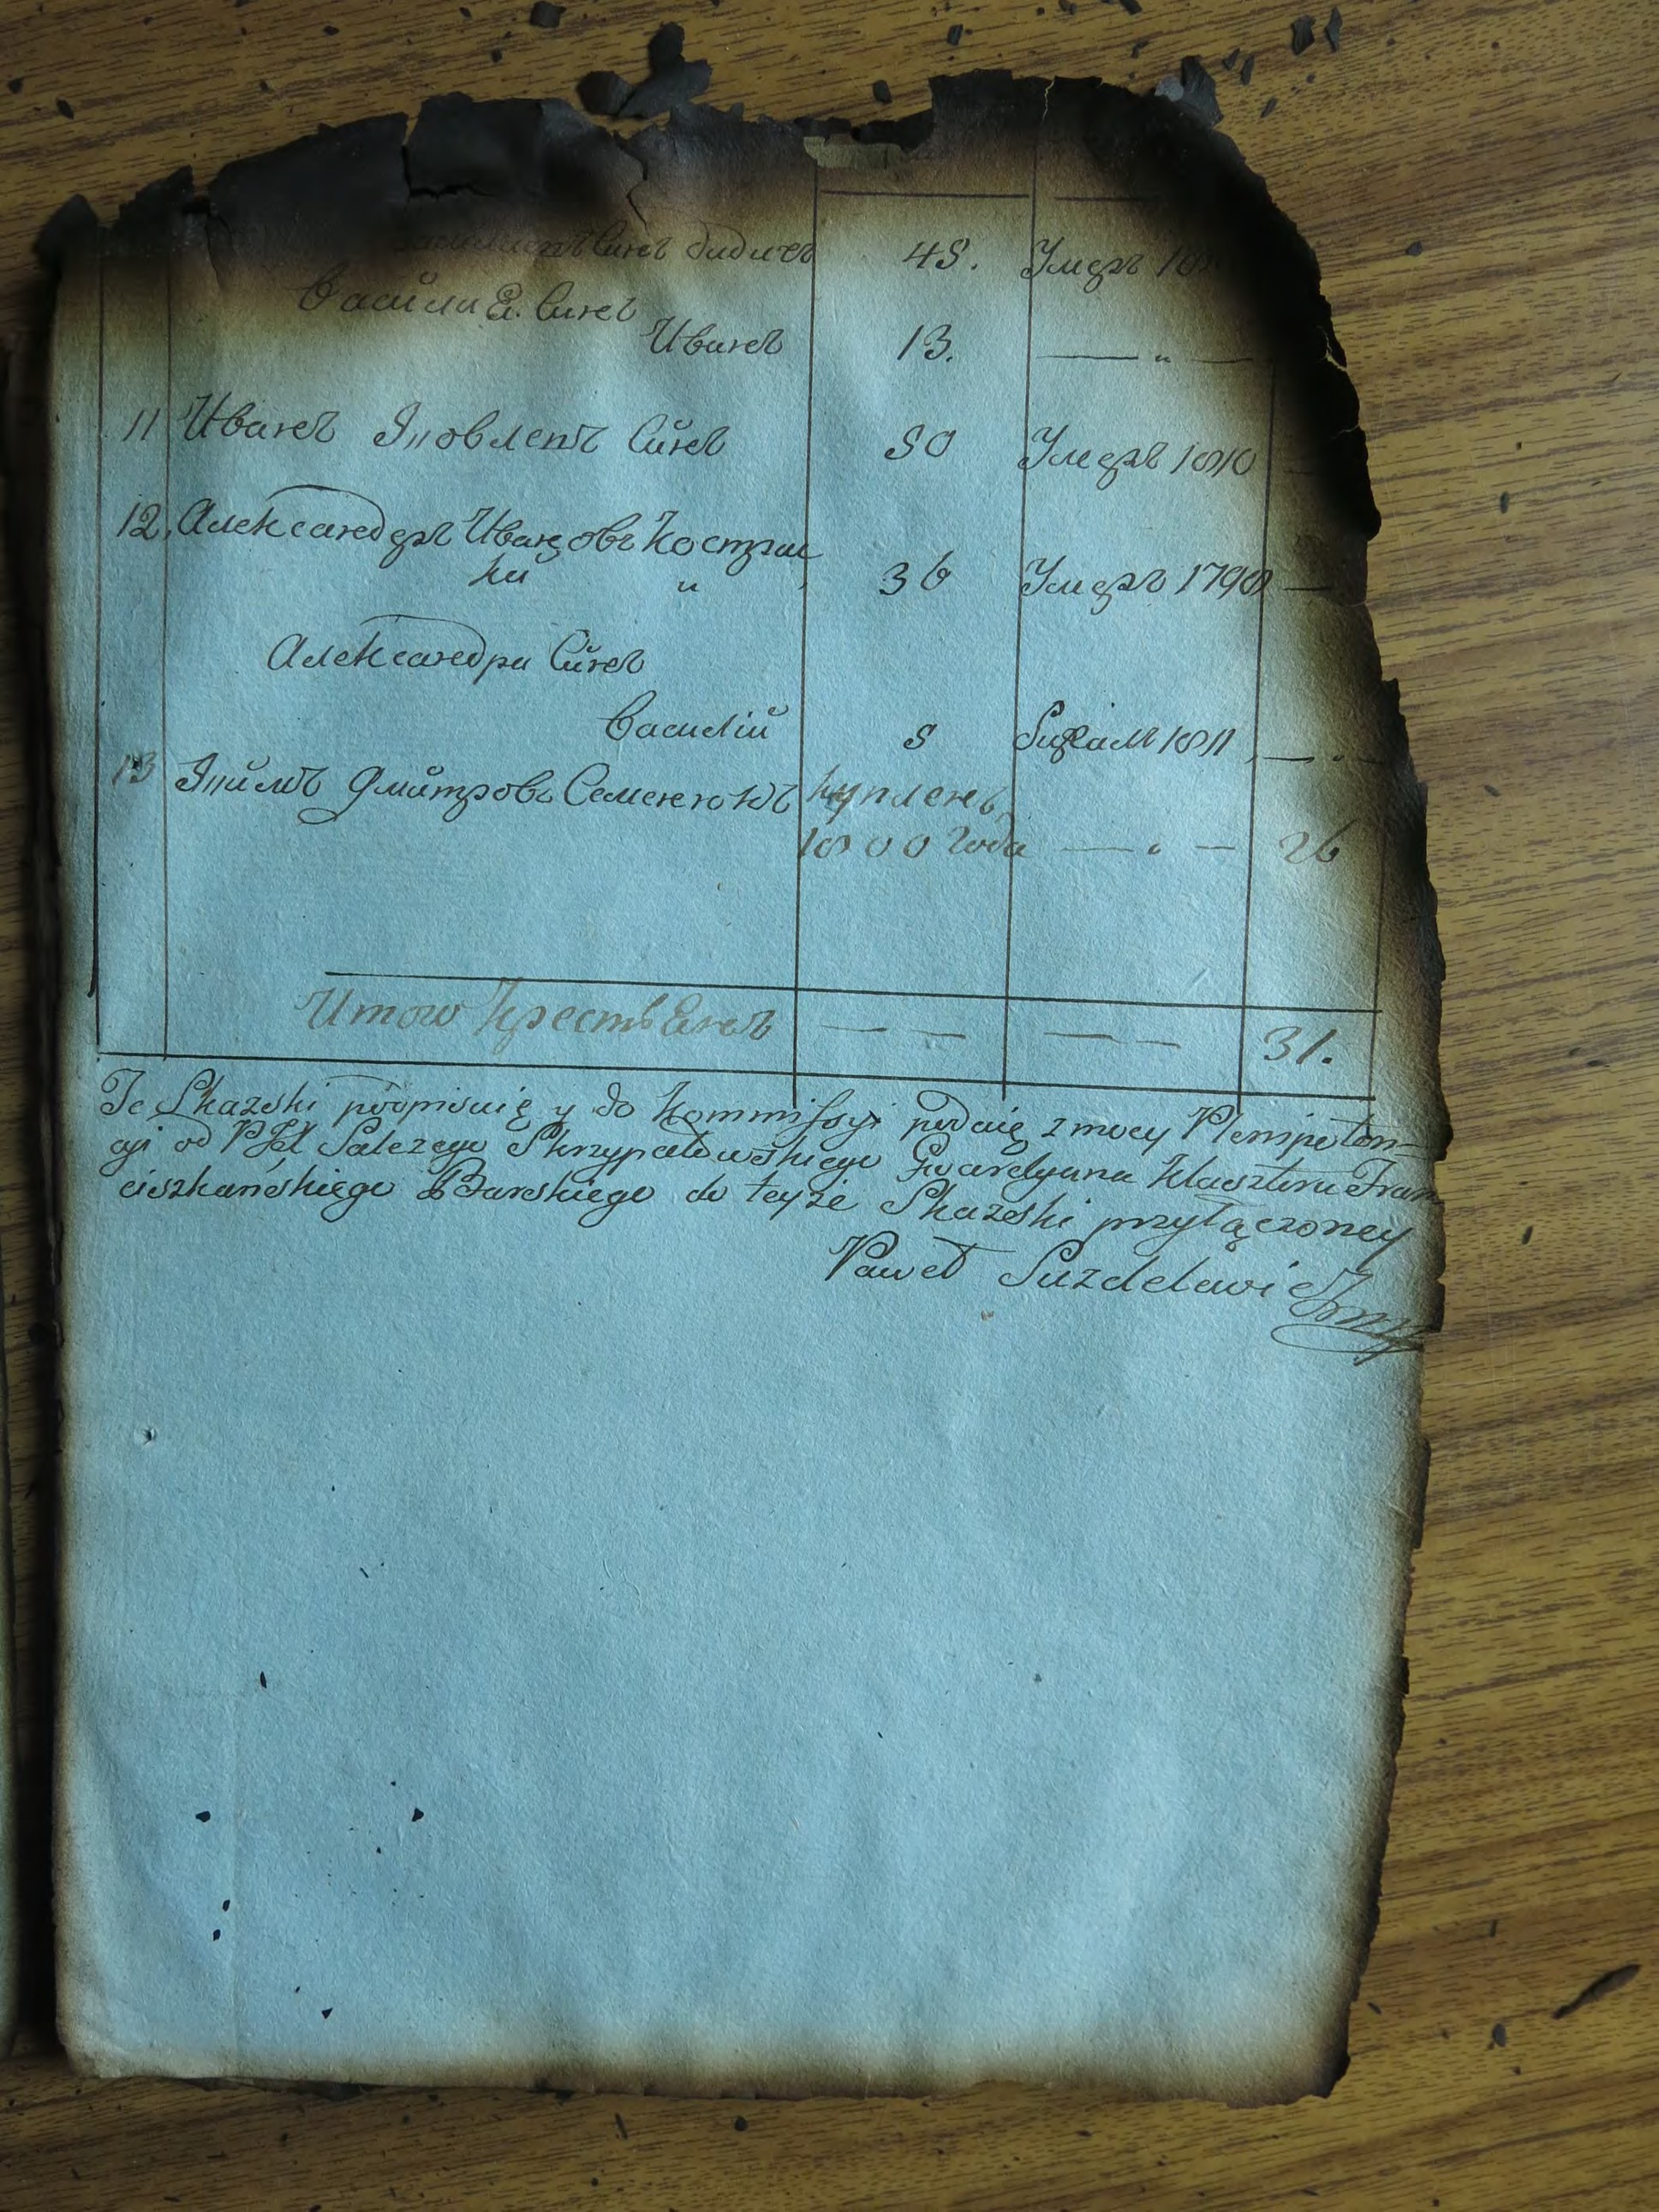 Сынъ 45. Умеръ 18
Васили Е. Сынъ
Иванъ 13. — „ —
11 Иванъ Яковлевъ Сынъ 50 Умеръ 1810
12. Александеръ Иванцовъ Костри
ки „ 36 Умеръ 1798 —
Александра Сынъ
Василій 5 1811 — „ —
13 Якимъ Дмитровъ Семенюкъ купленъ
1800 года — „ — 26
Итого крестьЕнъ — — — — 31.
Te Skazski podpisuię y do Kommissyi podaię z mocy Plenipoten-
cyi od Salezego Skrzypałowskiego Gwardyana Klasztoru Fran
ciszkańskiego Barskiego do teyże Skazski przyłączoney
Paweł Suzdelewicz